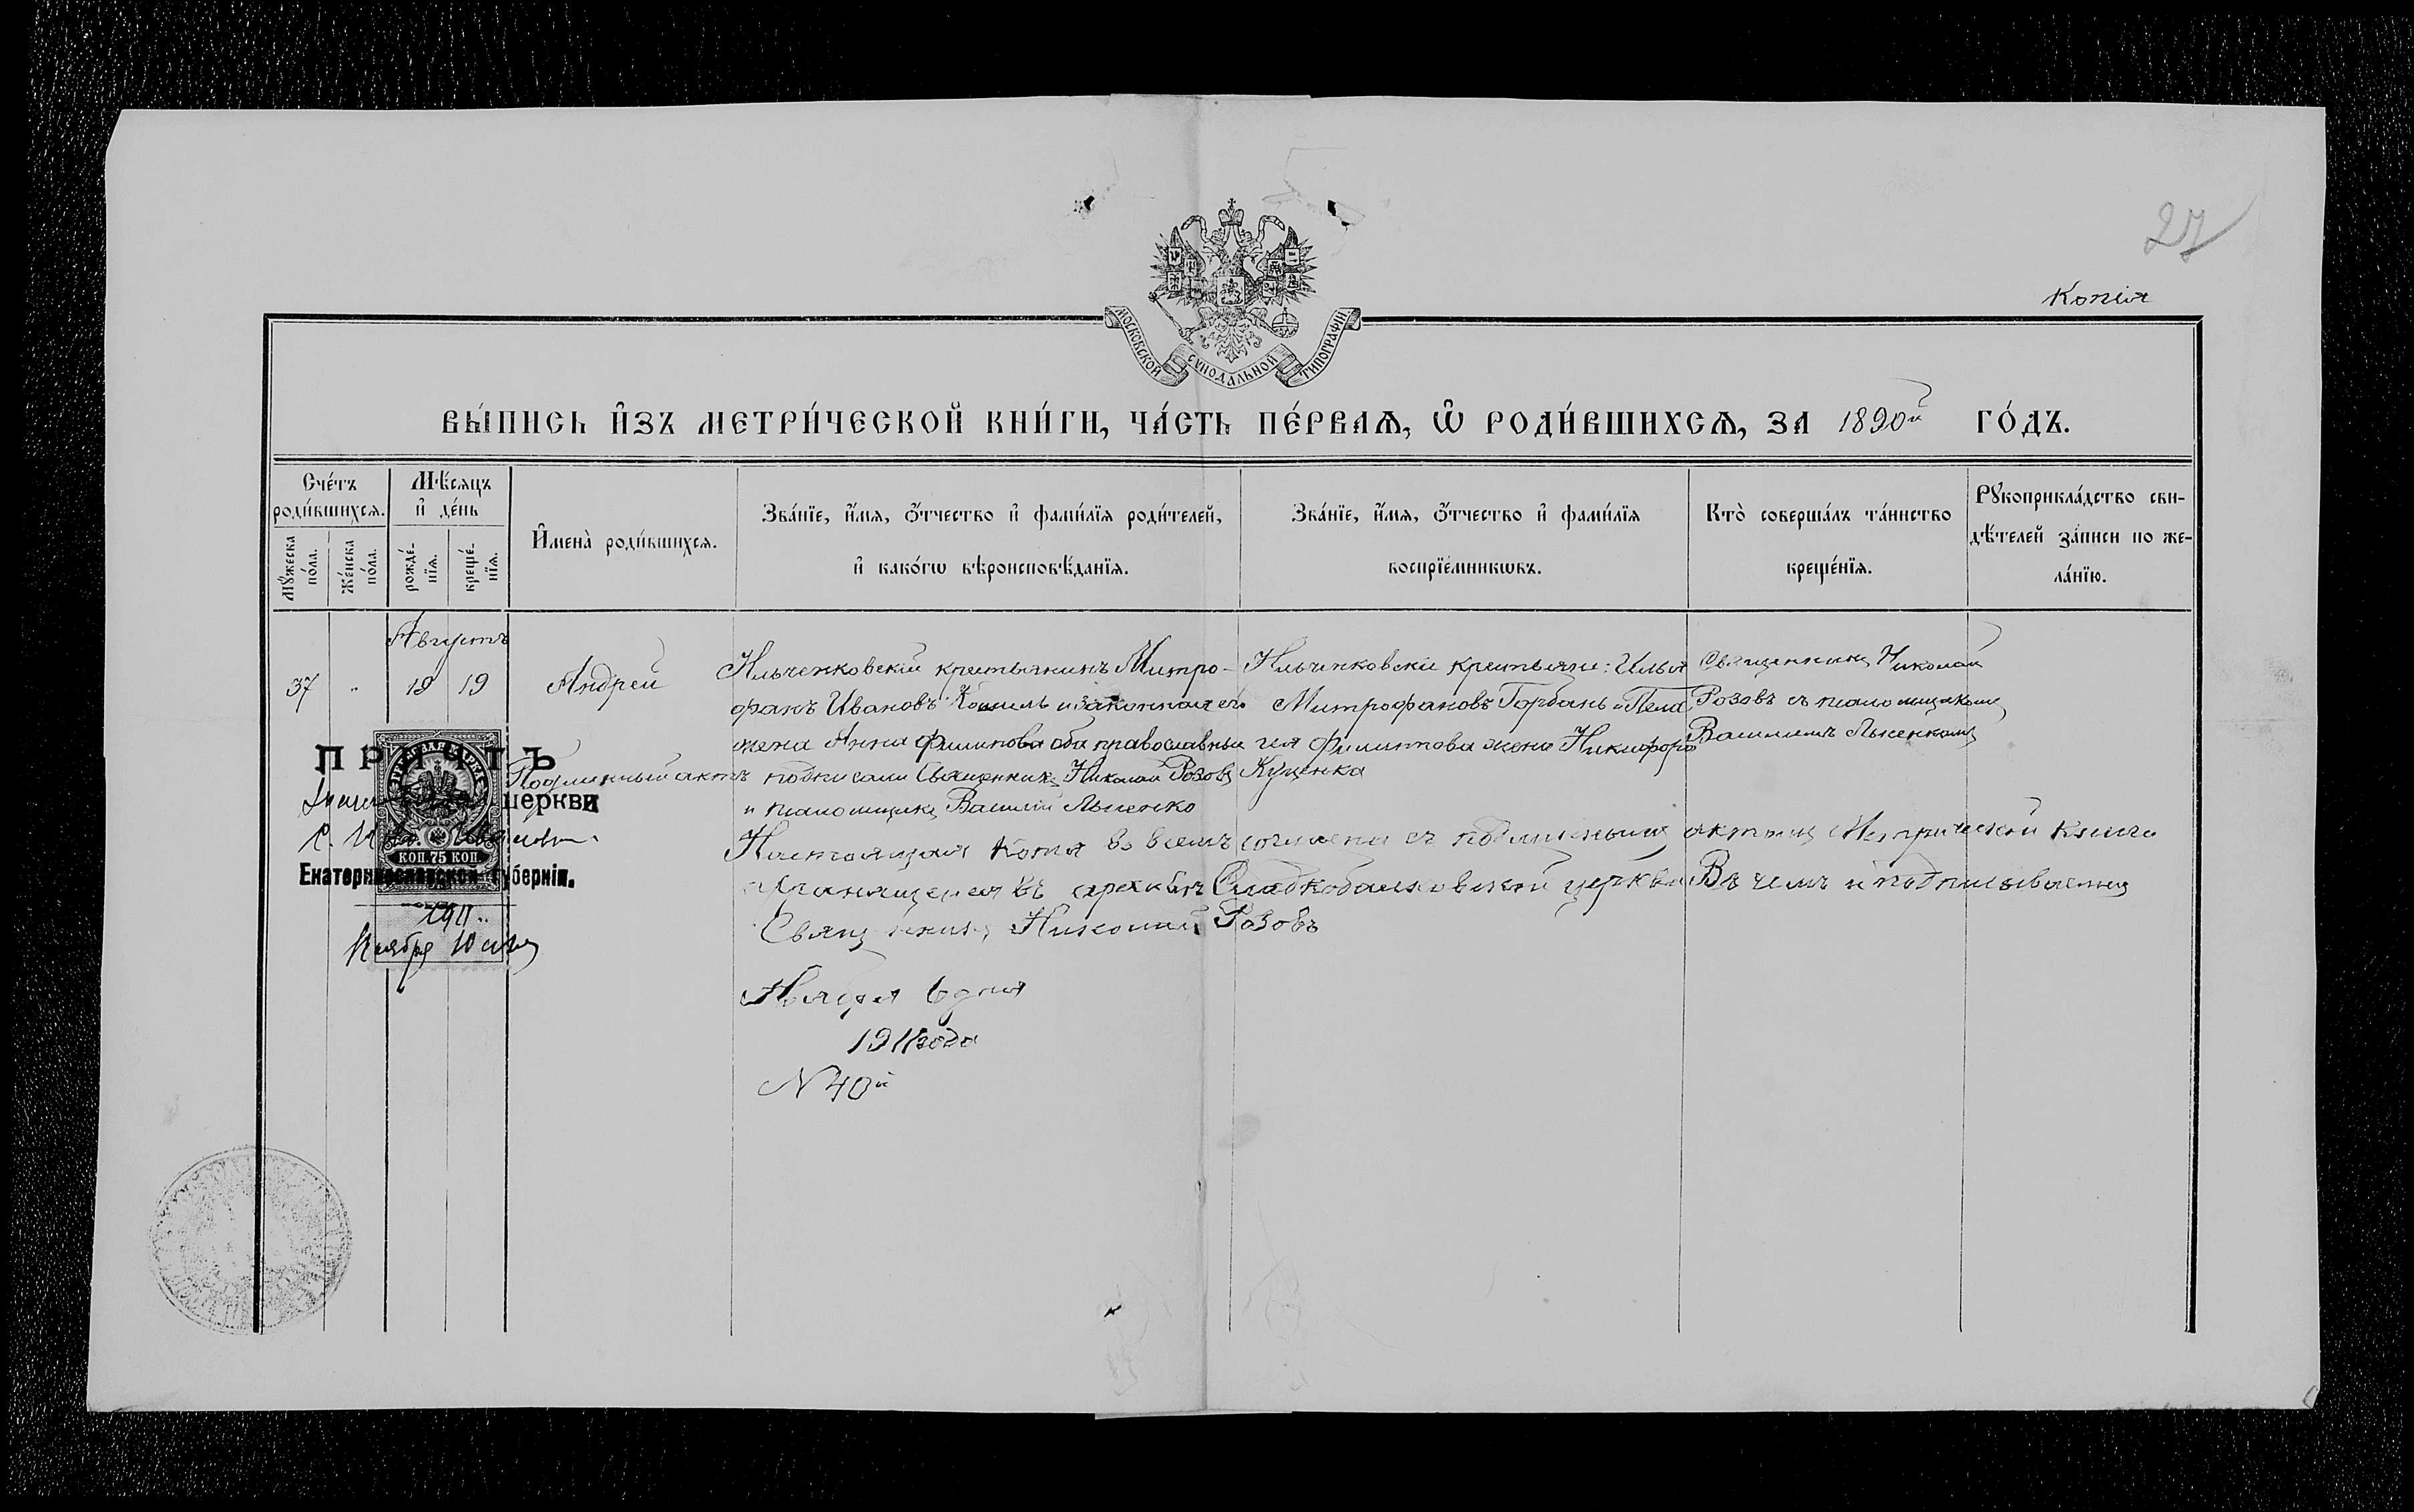 27
Копія
МОСКОВСКОЙ СѴНОДАЛЬНОЙ ТИПОГРАФІИ
ВЫ́ПИСЬ И҆ЗЪ МЕТРИ́ЧЕСКОЙ КНИ́ГИ, ЧА́СТЬ ПЕ́РВАѦ, Ѡ҆ РОДИ́ВШИХСѦ, ЗА 1890й ГО́ДЪ.
Счéтъ роди́вшихсѧ.
Мꙋ́жеска по́ла.
Же́нска по́ла.
Мѣ́сяцъ и҆ де́нь
рожде́нїѧ.
креще́нїѧ.
И҆мена̀ роди́вшихсѧ.
Зва́нїе, и҆́мѧ, ѻ҆́тчество и҆ фами́лїѧ роди́телей,
и҆ како́гѡ вѣроисповѣ́данїѧ.
Зва́нїе, и҆́мѧ, ѻ҆́тчество и҆ фами́лїѧ
воспрїе́мникѡвъ.
Кто̀ соверша́лъ та́инство
креще́нїѧ.
Рꙋкоприкла́дство сви-
дѣ́телей за́писи по же-
ла́нїю.
Августъ
37 " 19 19
Андрей
Ильченковскій крестьянинъ Митро-
фанъ Ивановъ и законная его
жена Анна Филипова оба православные
Ильченковскіе крестьяне: Илья
Митрофановъ Горбань и Пела
гея Филиппова жена Никифора
Куценка
Священникъ Николай
Розовъ съ псаломщикомъ
Василіемъ Лысенкомъ
Подлинный актъ подписали Священникъ Николай Розовъ
и псаломщикъ Василій Лысенко
Настоящая копія во всемъ согласна съ подлиннымъ актомъ Метрической книги
хранящейся въ архивѣ Сладкобалковской церкви Въ чемъ и подписываемъ
Священникъ Николай Розовъ
Ноября 6 дня
1911 года
N 40й
ПРИЧТЪ
церкви
Екатеринославской губерніи.
КОП. 75 КОП.
1911
Ноября 10 дня